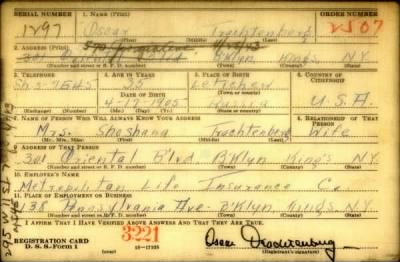 SERIAL NUMBER 1. NAME (Print) ORDER NUMBER
1297 Oscar Trachtenberg 2507
(First) (Middle) (Last)
2. ADDRESS (Print)
301 Oriental Blvd B'klyn King's N.Y.
(Number and street or R. F. D. number) (Town) (County) (State)
3. TELEPHONE 4. AGE IN YEARS 5. PLACE OF BIRTH 6. COUNTRY OF CITIZENSHIP
Sh3-7645 35 Letichev
DATE OF BIRTH
4-17-1905 Russia U.S.A.
(Exchange) (Number) (Mo.) (Day) (Yr.) (State or country)
7. NAME OF PERSON WHO WILL ALWAYS KNOW YOUR ADDRESS 8. RELATIONSHIP OF THAT PERSON
Mrs. Shoshana Trachtenberg Wife
(Mr., Mrs., Miss) (First) (Middle) (Last)
9. ADDRESS OF THAT PERSON
301 Oriental B'lvd. B'klyn King's N.Y.
(Number and street or R. F. D. number) (Town) (County) (State)
10. EMPLOYER'S NAME
Metropolitan Life Insurance Co.
11. PLACE OF EMPLOYMENT OR BUSINESS
138 Pennsylvania Ave B'klyn, King's N.Y.
(Number and street or R. F. D. number) (Town) (County) (State)
I AFFIRM THAT I HAVE VERIFIED ABOVE ANSWERS AND THAT THEY ARE TRUE.
REGISTRATION CARD 3221
D. S. S. Form 1 16-17105 Oscar Trachtenberg
(Registrant's signature)